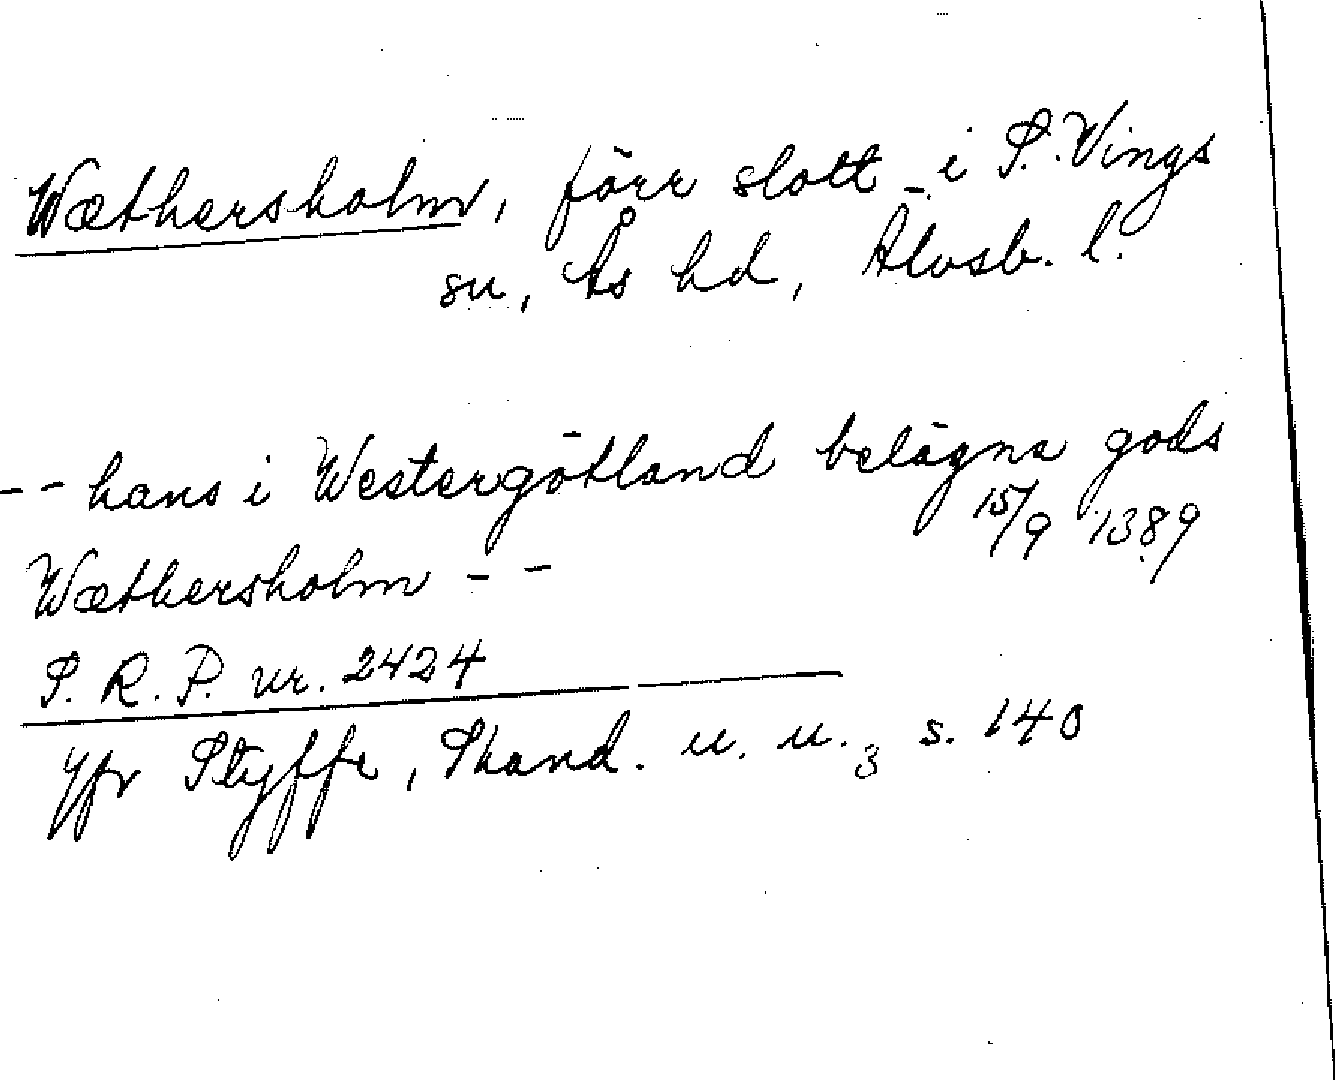 Wæthersholm, förr slott i S. Vings
sn, Ås hd, Älvsb. l.
-- hans i Westergötland belägna gods
15/9 1389
Wæthersholm --
S. R. P. nr. 2424
Jfr Styffe, Skand. u. u. 3 s. 140